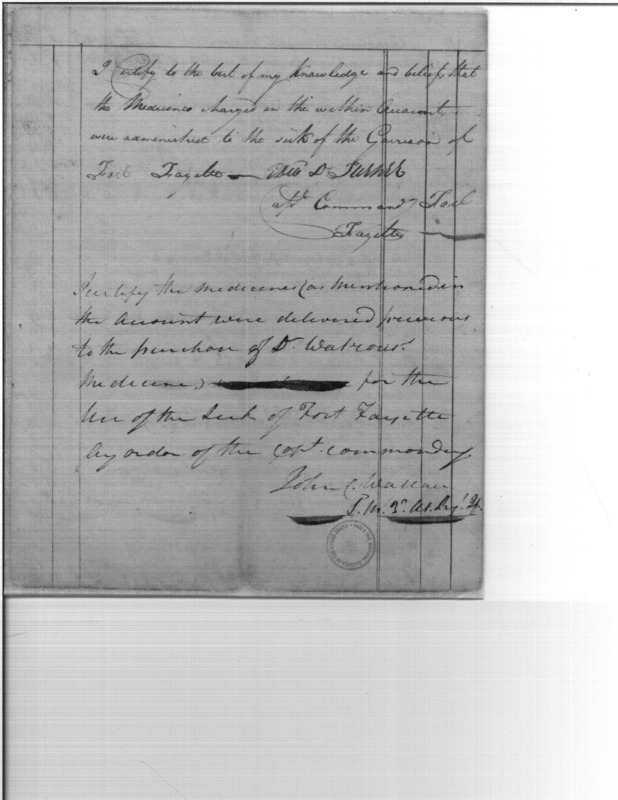 I Certify to the best of my Knowledge and belief that
the Medicines charged in the within Account
were administred to the sick of the Garrison of
Fort Fayette — Edwd D Turner
Capt Commandg Fort
Fayette
I certify the medecines (as mentioned in
the account were delivered previous
to the purchase of Dr. Watrous'
Medecine) for the
Use of the Sick of Fort Fayette
by order of the Capt. commanding
John C. Wallace
S. M.